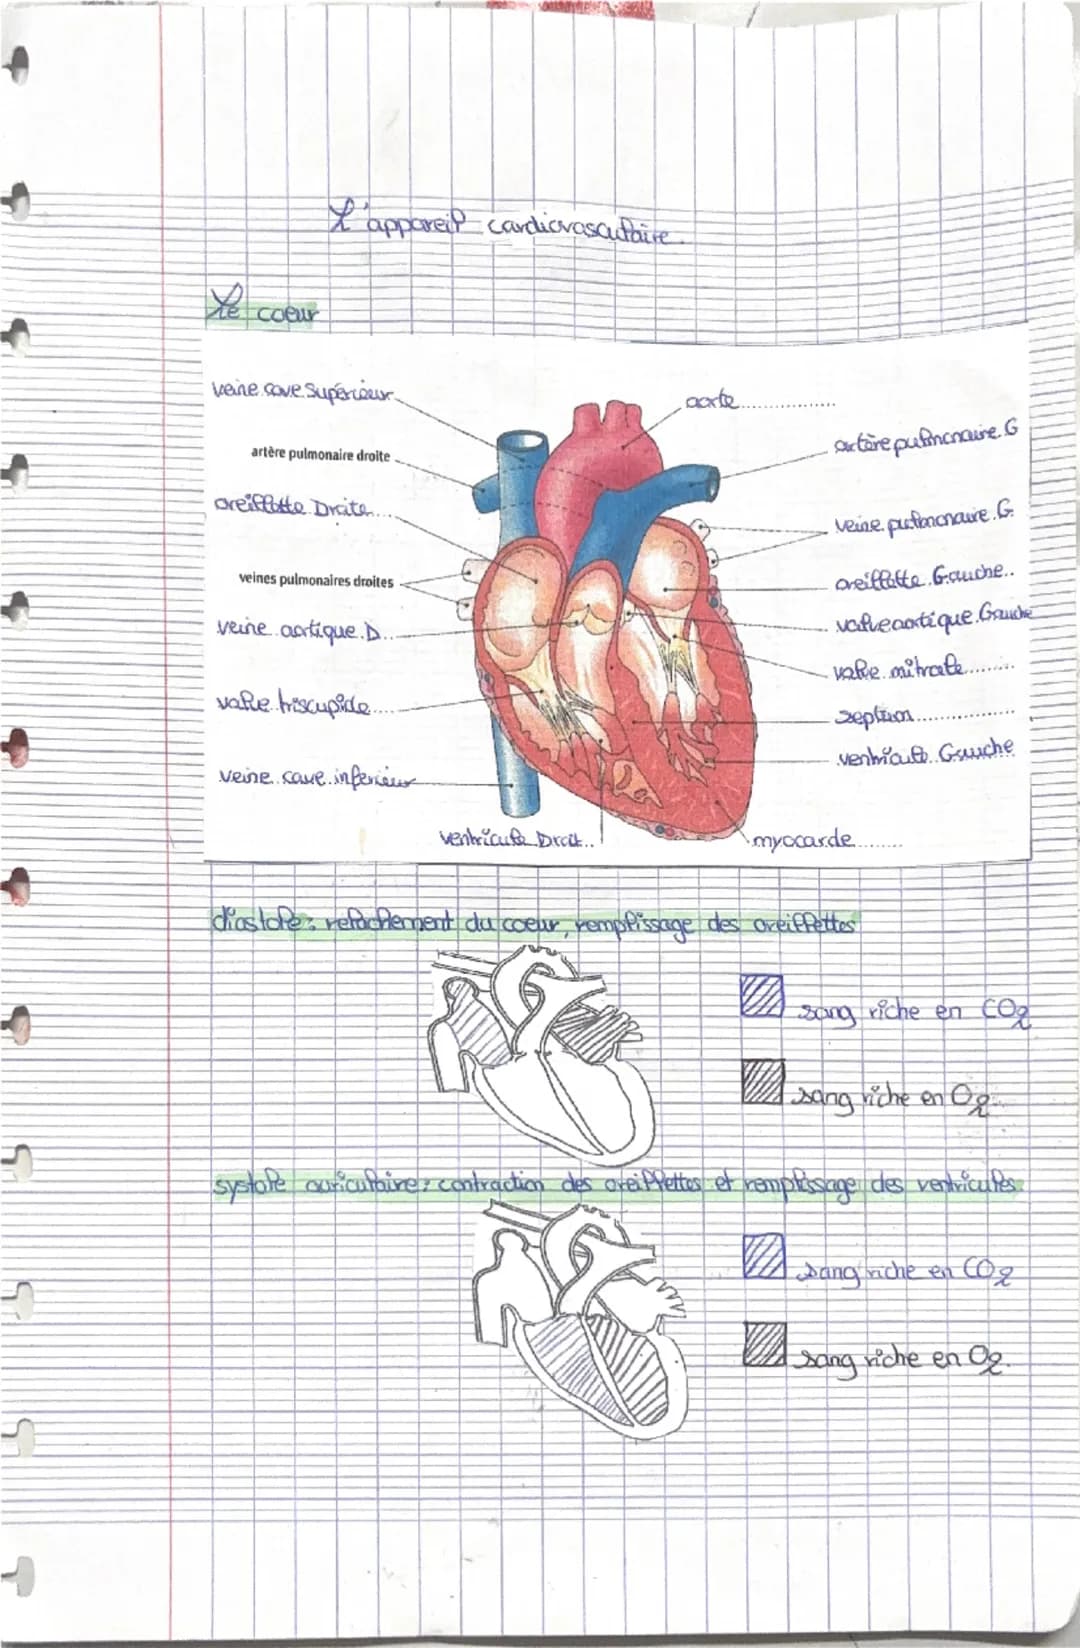 L'appareil cardiovasculaire.
Le coeur
veine cave Supérieur
artère pulmonaire droite
oreillette Droite
veines pulmonaires droites
veine aortique.D
valve triscupide
veine cave inferieur
ventricule Droit
aorte
artère pulmonaire.G
veine pulmonaire.G
oreillette Gauche
valve aortique Gauche
valve mitrale
septum
ventricule Gauche
myocarde
diastole: relachement du coeur, remplissage des oreillettes
sang riche en CO2
sang riche en O2
systole auriculaire: contraction des oreillettes et remplissage des ventricules
sang riche en CO2
sang riche en O2.